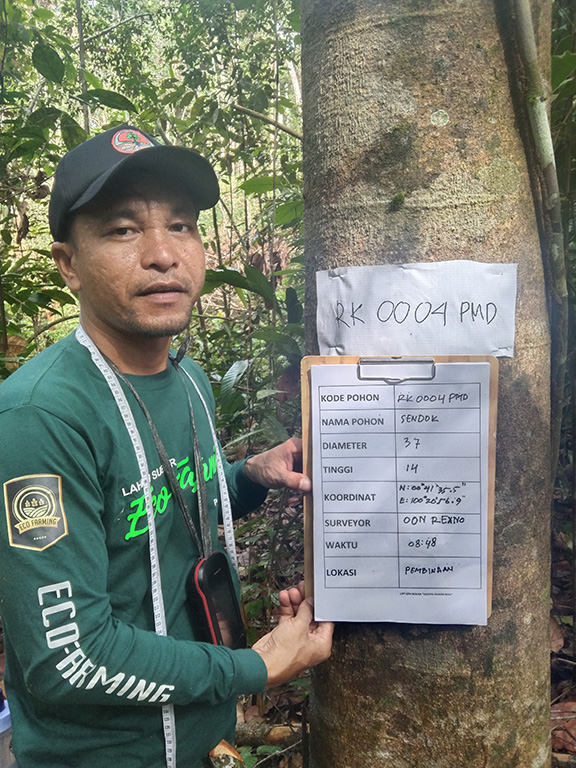 RK 0004 PMD
KODE POHON RK 0004 PMD
NAMA POHON SENDOK
DIAMETER 37
TINGGI 14
KOORDINAT N: 00°41'35.5" E: 100°20'56.9"
SURVEYOR OON REXNO
WAKTU 08:48
LOKASI PEMBINAAN
ECO FARMING
ECO-FARMING